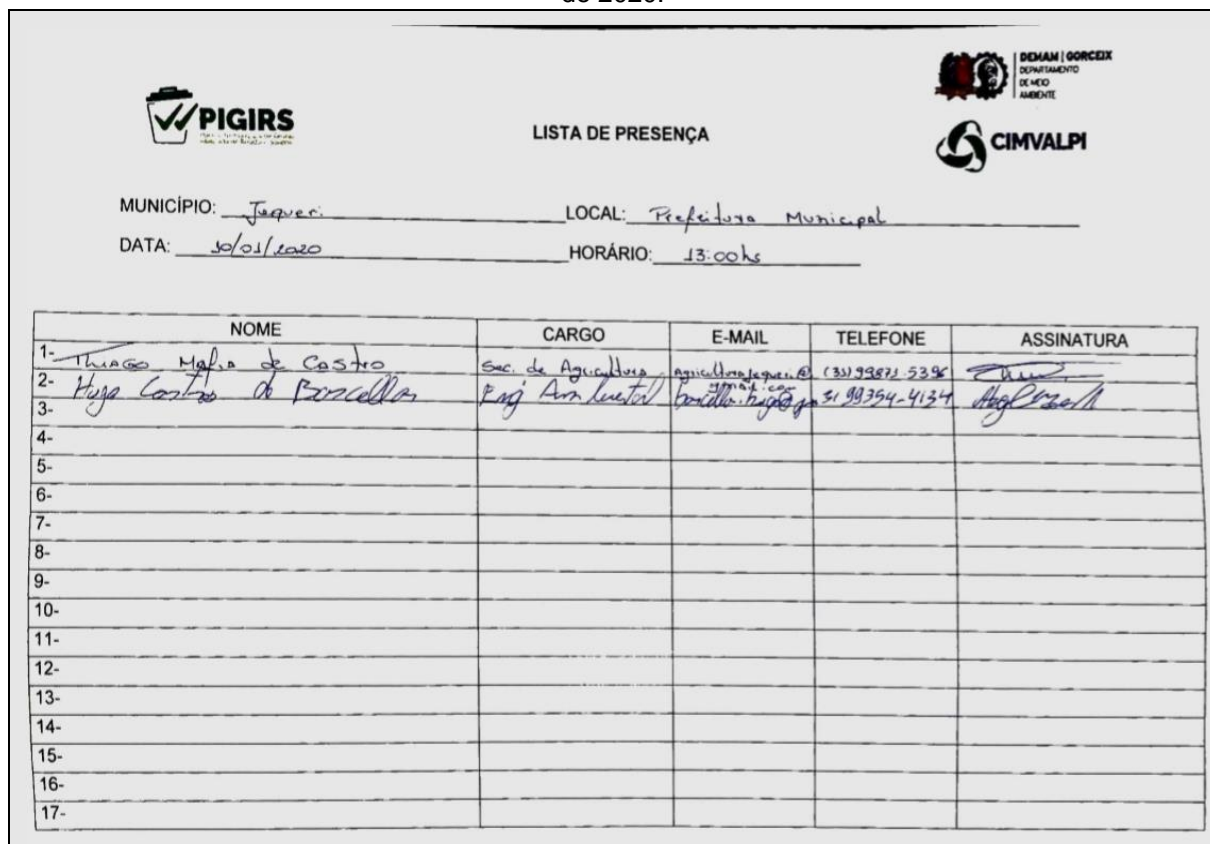 de 2020.
DEMAM | GORCEIX
DEPARTAMENTO
DE MEIO
AMBIENTE
PIGIRS
LISTA DE PRESENÇA
CIMVALPI
MUNICÍPIO: Jequeri LOCAL: Prefeitura Municipal
DATA: 30/01/2020 HORÁRIO: 13:00hs
NOME CARGO E-MAIL TELEFONE ASSINATURA
1- Thiago Mafia de Castro Sec. de Agricultura agriculturajequeri@ gmail.com (31) 99871-5396
2- Hugo Castro de Barcellos Eng Ambiental 31 99354-4134
3-
4-
5-
6-
7-
8-
9-
10-
11-
12-
13-
14-
15-
16-
17-